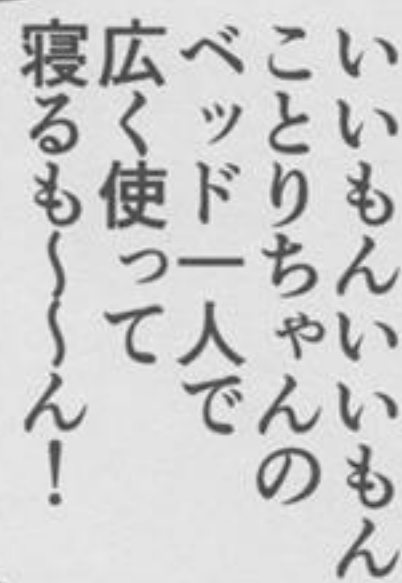 いいもんいいもん
ことりちゃんの
ベッド一人で
広く使って
寝るも〜〜ん！